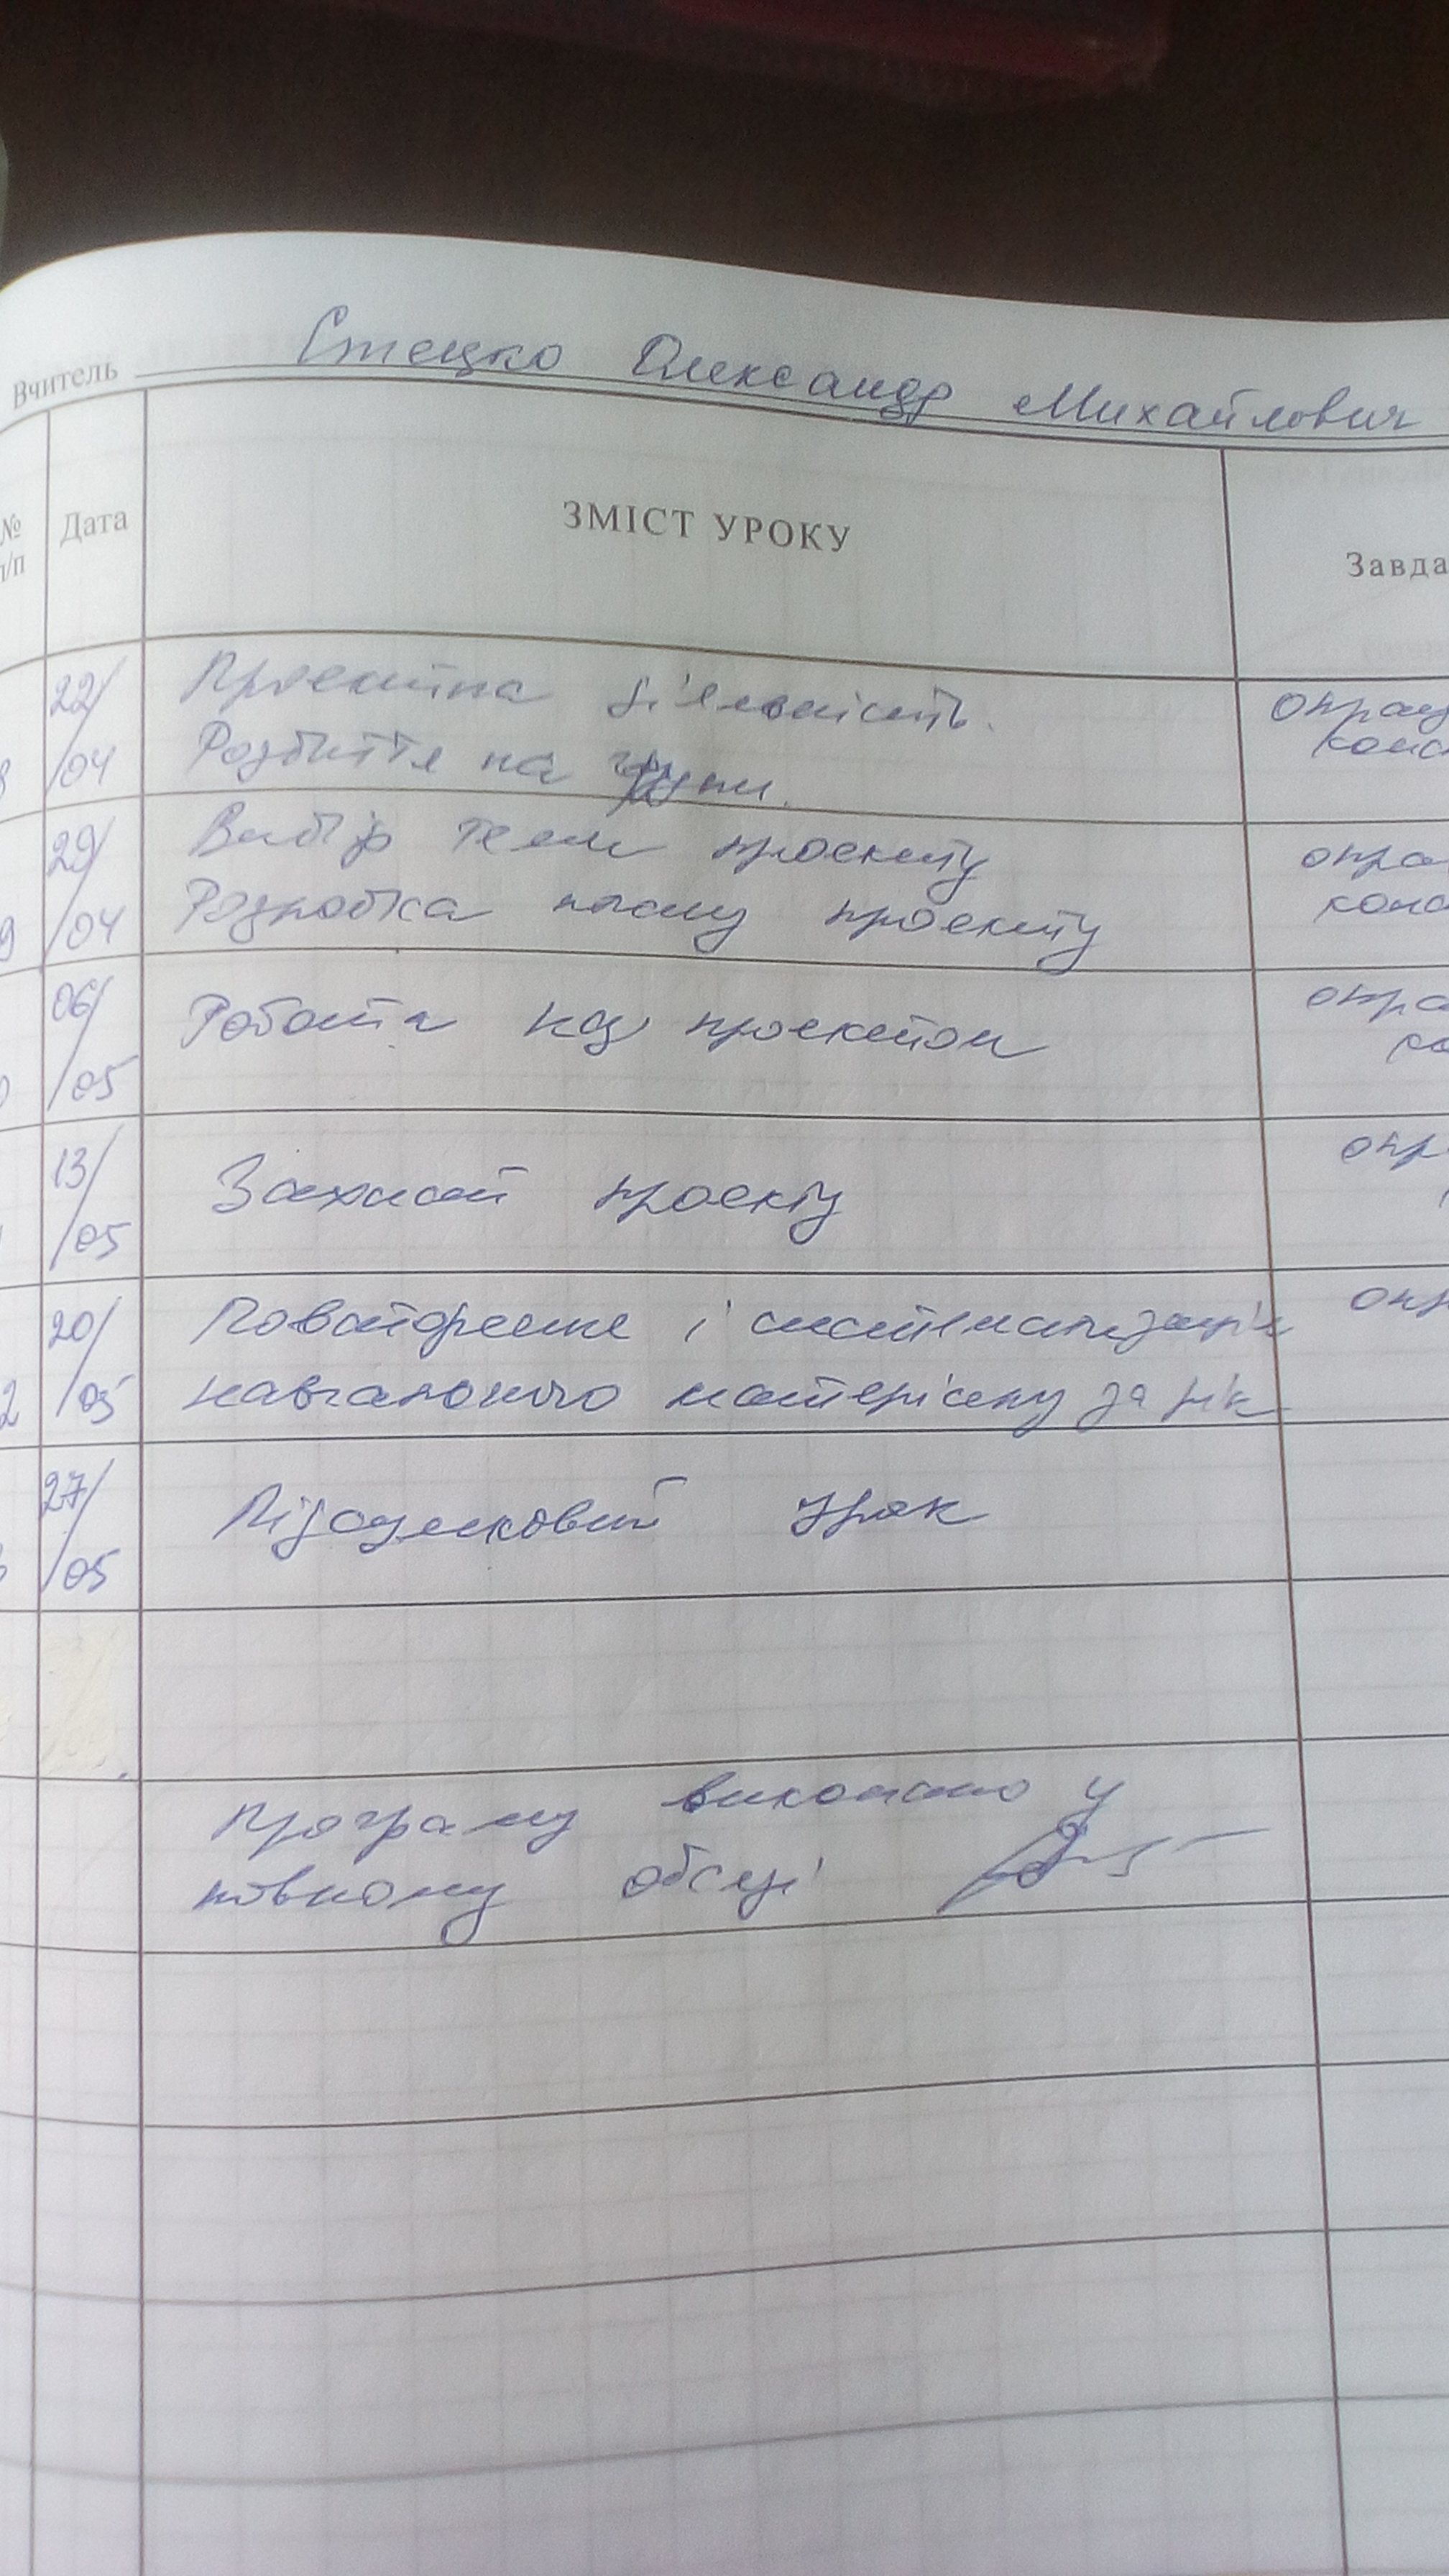 Вчитель Стецко Олександр Михайлович
№ п/п Дата ЗМІСТ УРОКУ Завда
22/04 Проектна діяльність. опрац
Розбиття на групи. конс
29/04 Вибір теми проекту опра
Розробка плану проекту конс
06/05 Робота над проектом опра
ко
13/05 Захист проекту опр
20/05 Повторення і систематизація опр
навчального матеріалу за рік
27/05 Підсумковий урок
Програму виконано у
повному обсязі